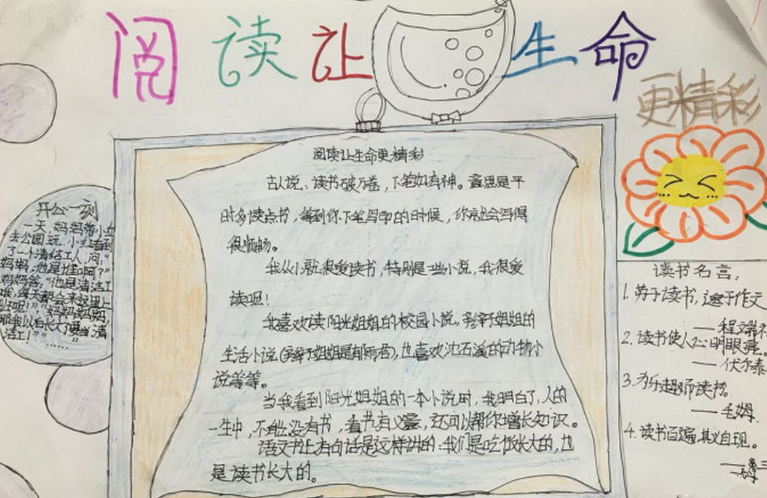 阅读让生命
更精彩
阅读让生命更精彩
古人说、读书破万卷，下笔如有神。意思是平
时多读点书，等到你下笔写的时候，你就会写得
很顺畅。
我从小就很爱读书，特别是一些小说，我很爱
读呢！
我喜欢读阳光姐姐的校园小说。
生活小说，也喜欢沈石溪的动物小
说等等。
当我看到阳光姐姐的一本小说时，我明白了，人的
一生中，不能没有书，看书有义意，还可以帮你增长知识。
语文书上有句话是这样讲的：我们是吃饭长大的，也
是读书长大的。
开心一刻
一天，妈妈带小红
去公园玩，小红看到
了一个清洁工人，问：“
妈妈，他是谁啊？”
妈妈答：“他是清洁工
读书名言：
1. 劳于读书，逸于作文
——程端礼
2. 读书使人心明眼亮。
——伏尔泰
3.
——毛姆
4. 读书百遍，其义自现。